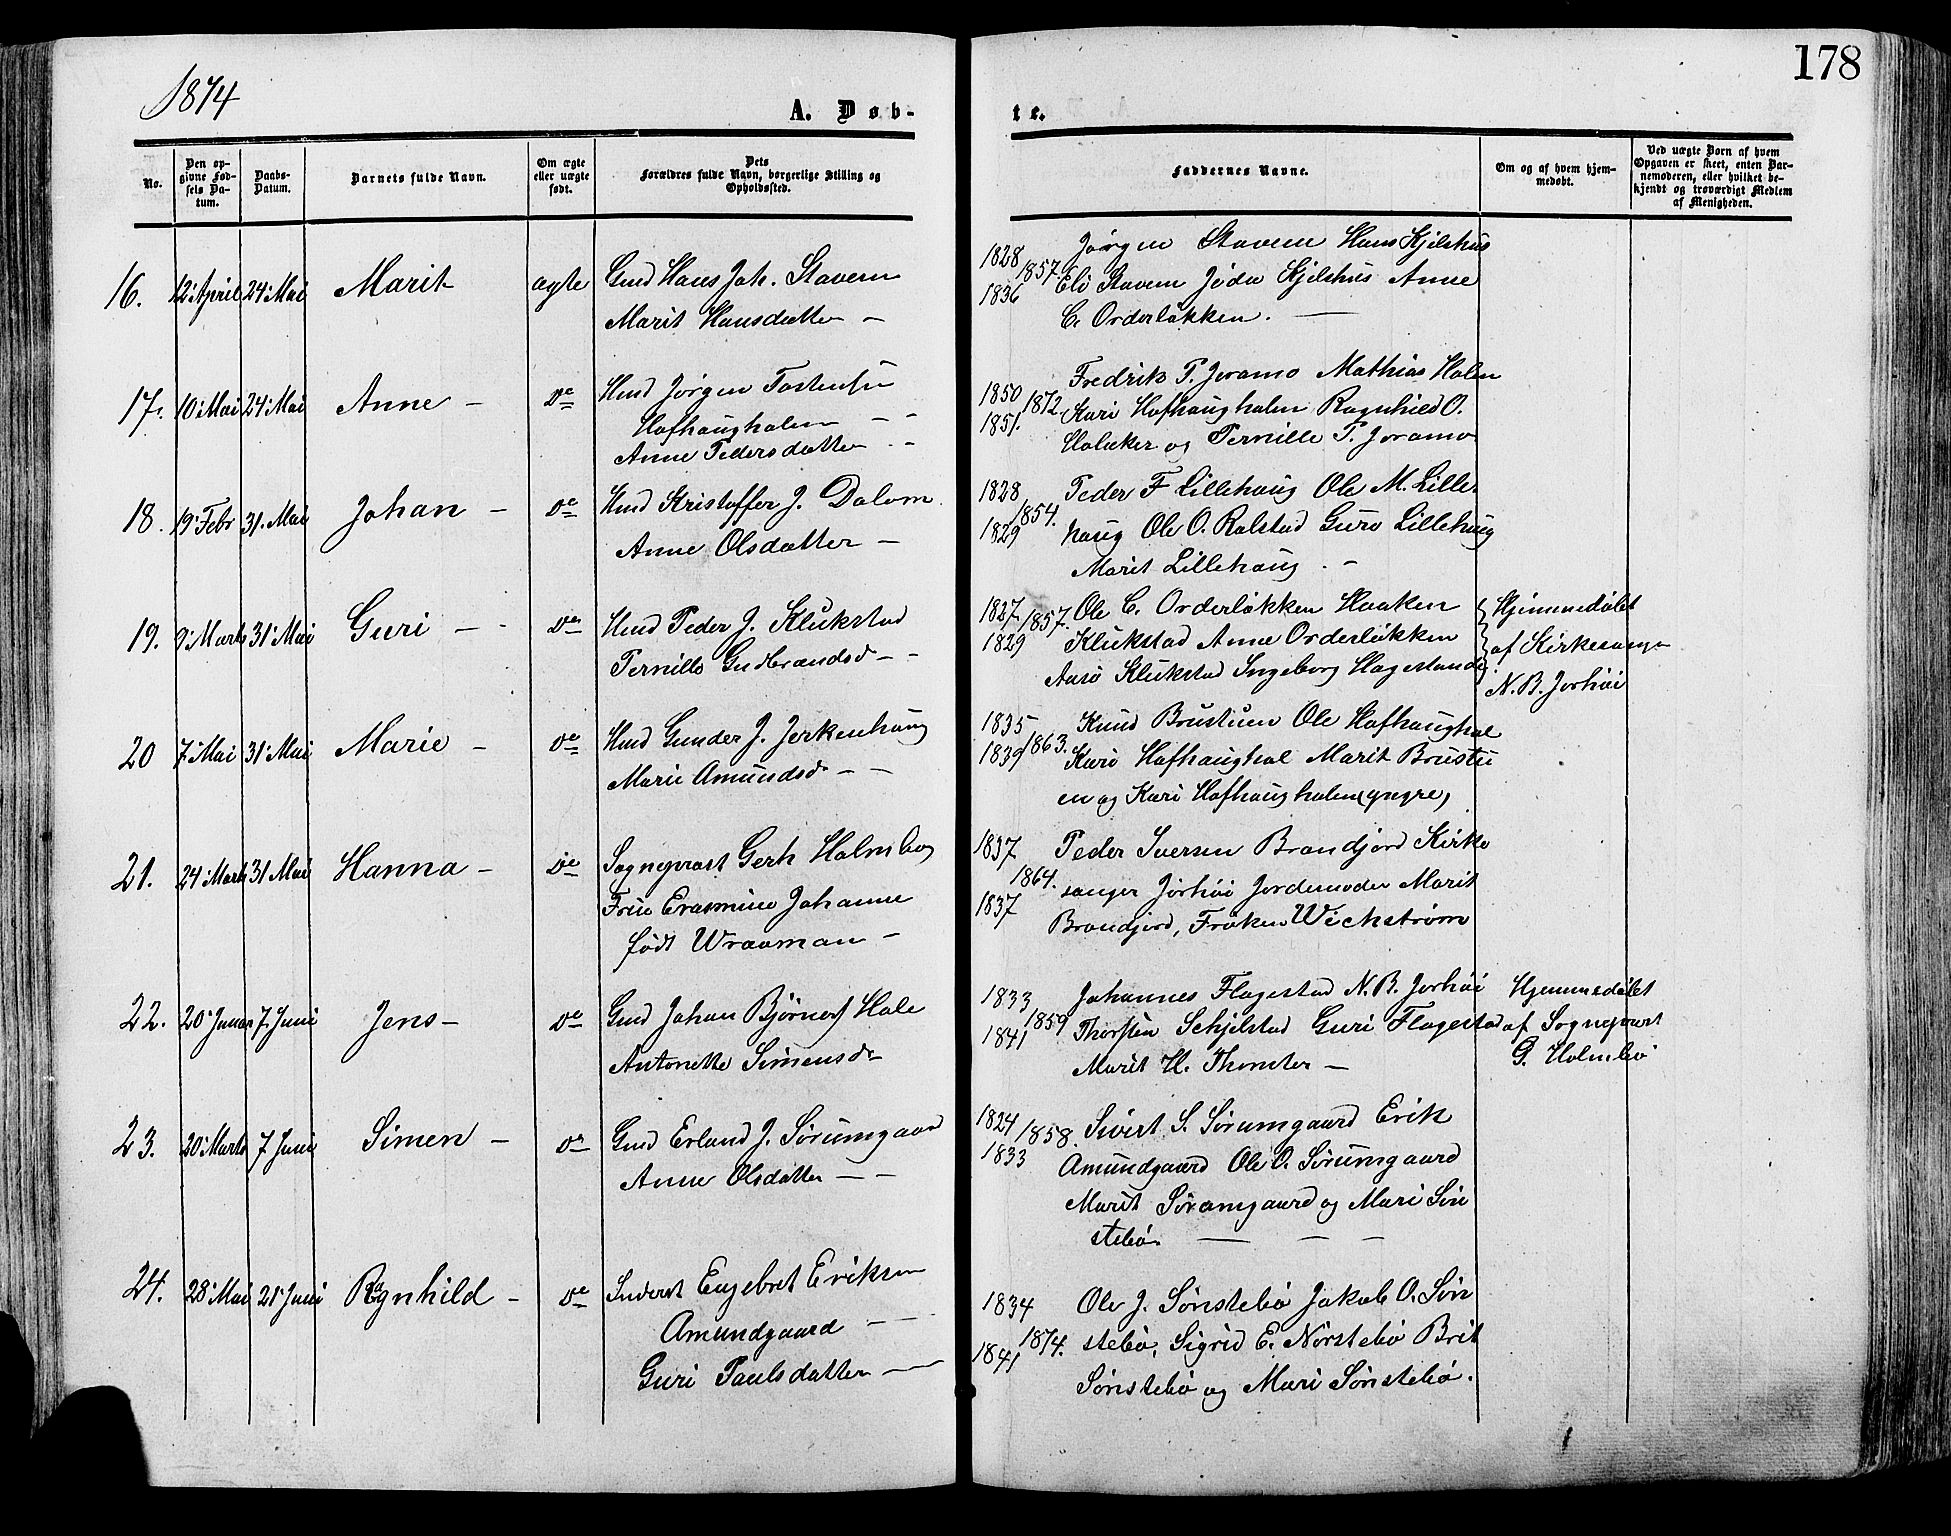 178
1874
A. Døb-
te.
No.
Den op-
givne Fød-
sels Da-
tum.
Daabs-
Datum.
Barnets fulde Navn.
Om ægte
eller uægte
født.
Dets
Forældres fulde Navn, borgerlige Stilling og
Opholdssted.
Faddernes Navne.
Om og af hvem hjem-
medøbt.
Ved uægte Born af hvem
Opgaven er skeet, enten Bar-
nemoderen, eller hvilket be-
kjendt og troværdigt Medlem
af Menigheden.
16. 12 April 24 Mai Marit ægte
Gmd Hans Joh. Stavem
Marit Hansdatter —
1828 1857
1836
Jørgen Stavem Hans Kjelshus
Eli Stavem Kjelshus Anne
C. Orderløkken. —
17. 10 Mai 24 Mai Anne — De
Hmd Jørgen Tostensen
Hofhaughalen —
Anne Pedersdatter —
1850 1872
1851.
Fredrik P. Joramo Mathias Holen
Kari Hofhaughalen Ragnhild O.
Holaker og Pernille P. Joramo
18. 19 Febr 31. Mai Johan — De
Hmd Kristoffer J. Dalom
Anne Olsdatter —
1828 1854.
1829
Peder F Lillehaug Ole M. Lille-
haug Ole O. Rolstad Guro Lillehaug
Marit Lillehaug. —
19. 9 Marts 31 Mai Guri — De
Hmd Peder J. Klukstad
Pernille Gudbrandsd —
1827 1857.
1829
Ole C. Orderløkken Haaken
Klukstad Anne Orderløkken
Klukstad Ingeborg Hagestande
Hjemmedøbt
af Kirkesanger
N. B. Jorhøi
20 7 Mai 31 Mai Marie — De
Hmd Gunder J. Jerkenhaug
Marie Amundsd —
1835 1863.
1839
Knud Brustuen Ole Hofhaughal
Kari Hofhaughal Marit Brustu
en og Kari Hofhaughalen (yngre)
21. 24 Marts 31 Mai Hanna — De
Sogneprast Gerh Holmboe
Frue Erasmine Johanne
født Wraaman —
1837 1864.
1837
Peder Iversen Brandjord Kirke
sanger Jorhøi Jordemoder Marit
Brandjord, Frøken Wickstrøm
22. 20 Januar 7. Juni Jens — De
Gmd Johan Bjørner Hole
Antonette Simensd
1833 1859
1841
Johannes Flagestad N. B. Jorhøi
Thorsten Schjelstad Guri Flagestad
Marit H. Thomter —
Hjemmedøbt
af Sogneprast
G. Holmboe
23. 20 Marts 7 Juni Simen — De
Gmd Erland J. Sørumgaard
Anne Olsdatter —
1824 1858.
1833
Sivert S. Sørumgaard Erik
Amundgaard Ole O. Sørumgaard
Marit Sørumgaard og Mari Søn
stebø. —
24. 28 Mai 21 Juni Ragnhild — De
Inderst Engebret Eriksen
Amundgaard —
Guri Paulsdatter —
1834 1874.
1841
Ole J. Sønstebø Jakob O. Søn
stebø, Sigrid E. Nørstebø Brit
Sønstebø og Mari Sønstebø.